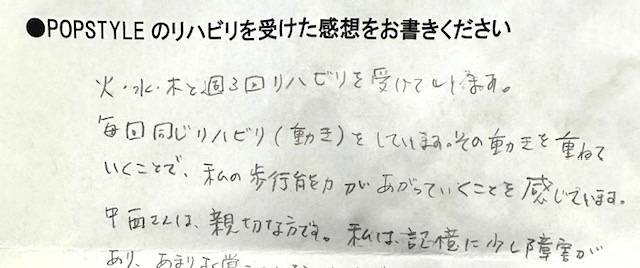 ●POPSTYLEのリハビリを受けた感想をお書きください
火・水・木と週3回リハビリを受けています。
毎回同じリハビリ(動き)をしています。その動きを重ねて
いくことで、私の歩行能力があがっていくことを感じています。
中西さんは、親切な方です。私は、記憶に少し障害が
あり、あまりよく覚